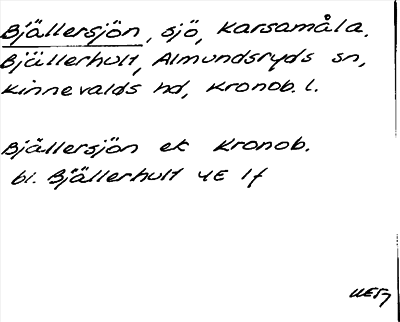 Bjällersjön, sjö, Karsamåla,
Bjällerhult, Almundsryds sn,
Kinnevalds hd, Kronob. l.
Bjällersjön ek Kronob.
bl. Bjällerhult 4E 1f